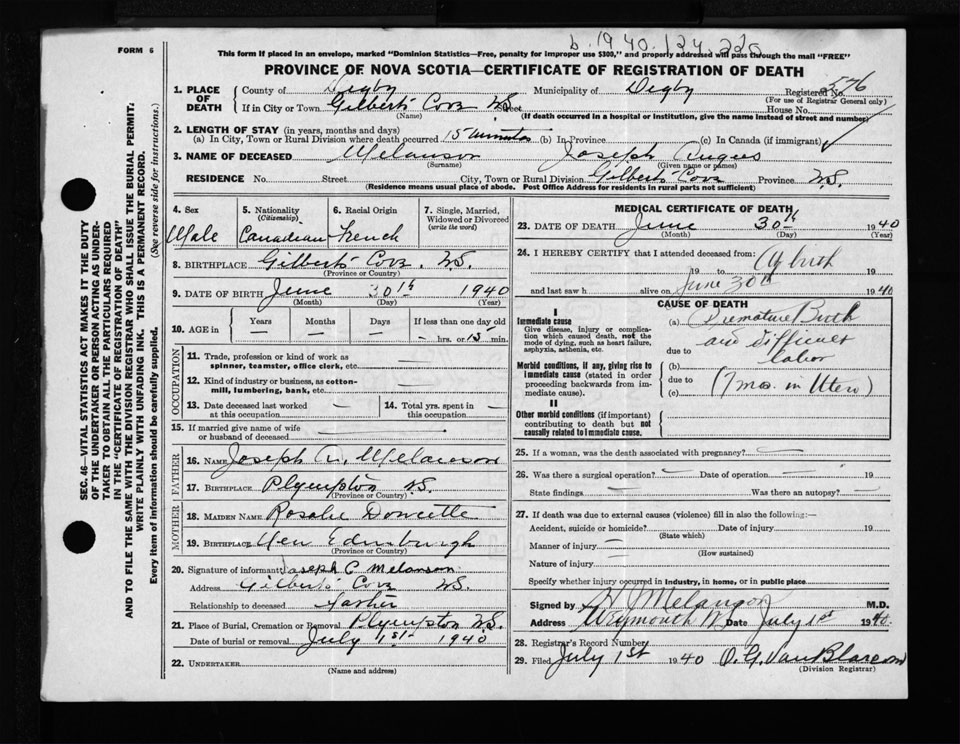 b. 1940. 124. 220
FORM 6
This form if placed in an envelope, marked "Dominion Statistics—Free, penalty for improper use $300," and properly addressed will pass through the mail "FREE"
PROVINCE OF NOVA SCOTIA—CERTIFICATE OF REGISTRATION OF DEATH
1. PLACE OF DEATH County of Digby Municipality of Digby Registered No. 576
(For use of Registrar General only)
If in City or Town Gilbert's Cove N.S. Street House No.
(Name) (If death occurred in a hospital or institution, give the name instead of street and number)
2. LENGTH OF STAY (in years, months and days)
(a) In City, Town or Rural Division where death occurred 15 minutes (b) In Province (c) In Canada (if immigrant) ✓
3. NAME OF DECEASED Melanson Joseph
(Surname) (Given name or names)
RESIDENCE No. Street. City, Town or Rural Division Gilbert's Cove Province N.S.
(Residence means usual place of abode. Post Office Address for residents in rural parts not sufficient)
SEC. 46—VITAL STATISTICS ACT MAKES IT THE DUTY
OF THE UNDERTAKER OR PERSON ACTING AS UNDER-
TAKER TO OBTAIN ALL THE PARTICULARS REQUIRED
IN THE "CERTIFICATE OF REGISTRATION OF DEATH"
AND TO FILE THE SAME WITH THE DIVISION REGISTRAR WHO SHALL ISSUE THE BURIAL PERMIT.
WRITE PLAINLY WITH UNFADING INK. THIS IS A PERMANENT RECORD.
Every item of information should be carefully supplied. (See reverse side for instructions.)
4. Sex 5. Nationality (Citizenship) 6. Racial Origin 7. Single, Married, Widowed or Divorced (write the word)
Male Canadian French
8. BIRTHPLACE Gilbert's Cove. N.S.
(Province or Country)
9. DATE OF BIRTH June 30th 1940
(Month) (Day) (Year)
10. AGE in Years Months Days If less than one day old
— — — — hrs. or 15 min.
OCCUPATION
11. Trade, profession or kind of work as spinner, teamster, office clerk, etc. —
12. Kind of industry or business, as cotton-mill, lumbering, bank, etc. —
13. Date deceased last worked at this occupation — 14. Total yrs. spent in this occupation —
15. If married give name of wife or husband of deceased —
FATHER
16. NAME Joseph C. Melanson
17. BIRTHPLACE Plympton N.S.
(Province or Country)
MOTHER
18. MAIDEN NAME Rosalie Doucette
19. BIRTHPLACE New Edinburgh
(Province or Country)
20. Signature of informant Joseph C Melanson
Address Gilbert's Cove N.S.
Relationship to deceased Father
21. Place of Burial, Cremation or Removal Plympton N.S.
Date of burial or removal July 1st 1940
22. UNDERTAKER
(Name and address)
MEDICAL CERTIFICATE OF DEATH
23. DATE OF DEATH June 30th 1940
(Month) (Day) (Year)
24. I HEREBY CERTIFY that I attended deceased from: At birth
19 to 19
and last saw h alive on June 30th 1940
CAUSE OF DEATH
I
Immediate cause
Give disease, injury or complication which caused death, not the mode of dying, such as heart failure, asphyxia, asthenia, etc.
(a) Premature Birth
and difficult
due to labor
Morbid conditions, if any, giving rise to Immediate cause (stated in order proceeding backwards from immediate cause).
(b)
due to (7 mos. in Utero)
(c)
II
Other morbid conditions (if important) contributing to death but not causally related to Immediate cause.
25. If a woman, was the death associated with pregnancy? —
26. Was there a surgical operation? — Date of operation — 19
State findings — Was there an autopsy? —
27. If death was due to external causes (violence) fill in also the following:—
Accident, suicide or homicide? Date of injury 19
(State which)
Manner of injury —
(How sustained)
Nature of injury —
Specify whether injury occurred in industry, in home, or in public place
Signed by Melanson M.D.
Address Weymouth N. Date July 1st 1940
28. Registrar's Record Number
29. Filed July 1st 1940 O. G. Van Blarcom
(Division Registrar)